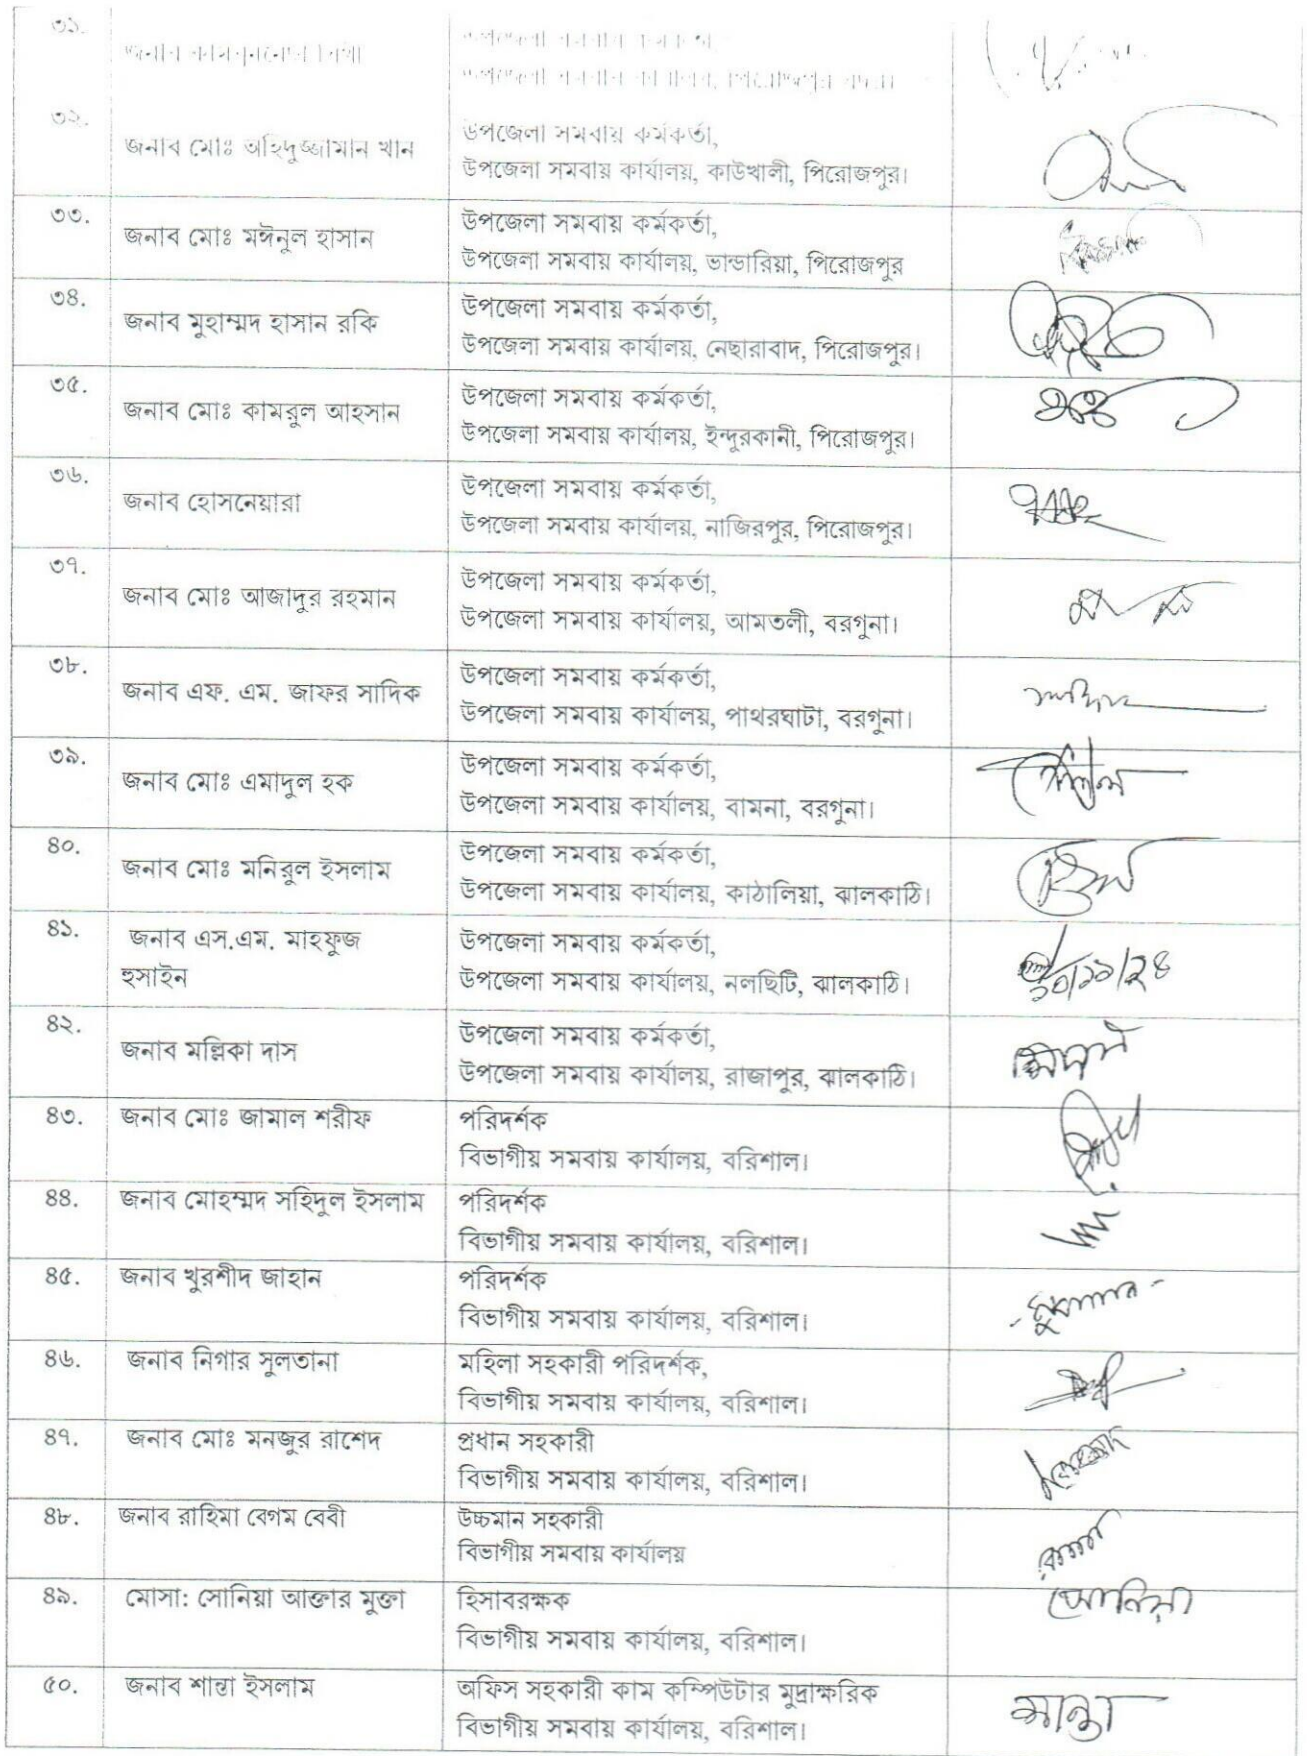 ৩১.
জনাব
উপজেলা সমবায় কর্মকর্তা,
উপজেলা সমবায় কার্যালয়, পিরোজপুর সদর।
৩২.
জনাব মোঃ অহিদুজ্জামান খান
উপজেলা সমবায় কর্মকর্তা,
উপজেলা সমবায় কার্যালয়, কাউখালী, পিরোজপুর।
৩৩.
জনাব মোঃ মঈনুল হাসান
উপজেলা সমবায় কর্মকর্তা,
উপজেলা সমবায় কার্যালয়, ভান্ডারিয়া, পিরোজপুর
৩৪.
জনাব মুহাম্মদ হাসান রকি
উপজেলা সমবায় কর্মকর্তা,
উপজেলা সমবায় কার্যালয়, নেছারাবাদ, পিরোজপুর।
৩৫.
জনাব মোঃ কামরুল আহসান
উপজেলা সমবায় কর্মকর্তা,
উপজেলা সমবায় কার্যালয়, ইন্দুরকানী, পিরোজপুর।
৩৬.
জনাব হোসনেয়ারা
উপজেলা সমবায় কর্মকর্তা,
উপজেলা সমবায় কার্যালয়, নাজিরপুর, পিরোজপুর।
৩৭.
জনাব মোঃ আজাদুর রহমান
উপজেলা সমবায় কর্মকর্তা,
উপজেলা সমবায় কার্যালয়, আমতলী, বরগুনা।
৩৮.
জনাব এফ. এম. জাফর সাদিক
উপজেলা সমবায় কর্মকর্তা,
উপজেলা সমবায় কার্যালয়, পাথরঘাটা, বরগুনা।
৩৯.
জনাব মোঃ এমাদুল হক
উপজেলা সমবায় কর্মকর্তা,
উপজেলা সমবায় কার্যালয়, বামনা, বরগুনা।
৪০.
জনাব মোঃ মনিরুল ইসলাম
উপজেলা সমবায় কর্মকর্তা,
উপজেলা সমবায় কার্যালয়, কাঠালিয়া, ঝালকাঠি।
৪১.
জনাব এস.এম. মাহফুজ
হুসাইন
উপজেলা সমবায় কর্মকর্তা,
উপজেলা সমবায় কার্যালয়, নলছিটি, ঝালকাঠি।
১০/১১/২৪
৪২.
জনাব মল্লিকা দাস
উপজেলা সমবায় কর্মকর্তা,
উপজেলা সমবায় কার্যালয়, রাজাপুর, ঝালকাঠি।
৪৩.
জনাব মোঃ জামাল শরীফ
পরিদর্শক
বিভাগীয় সমবায় কার্যালয়, বরিশাল।
৪৪.
জনাব মোহম্মদ সহিদুল ইসলাম
পরিদর্শক
বিভাগীয় সমবায় কার্যালয়, বরিশাল।
৪৫.
জনাব খুরশীদ জাহান
পরিদর্শক
বিভাগীয় সমবায় কার্যালয়, বরিশাল।
৪৬.
জনাব নিগার সুলতানা
মহিলা সহকারী পরিদর্শক,
বিভাগীয় সমবায় কার্যালয়, বরিশাল।
৪৭.
জনাব মোঃ মনজুর রাশেদ
প্রধান সহকারী
বিভাগীয় সমবায় কার্যালয়, বরিশাল।
৪৮.
জনাব রাহিমা বেগম বেবী
উচ্চমান সহকারী
বিভাগীয় সমবায় কার্যালয়
৪৯.
মোসা: সোনিয়া আক্তার মুক্তা
হিসাবরক্ষক
বিভাগীয় সমবায় কার্যালয়, বরিশাল।
সোনিয়া
৫০.
জনাব শান্তা ইসলাম
অফিস সহকারী কাম কম্পিউটার মুদ্রাক্ষরিক
বিভাগীয় সমবায় কার্যালয়, বরিশাল।
শান্তা